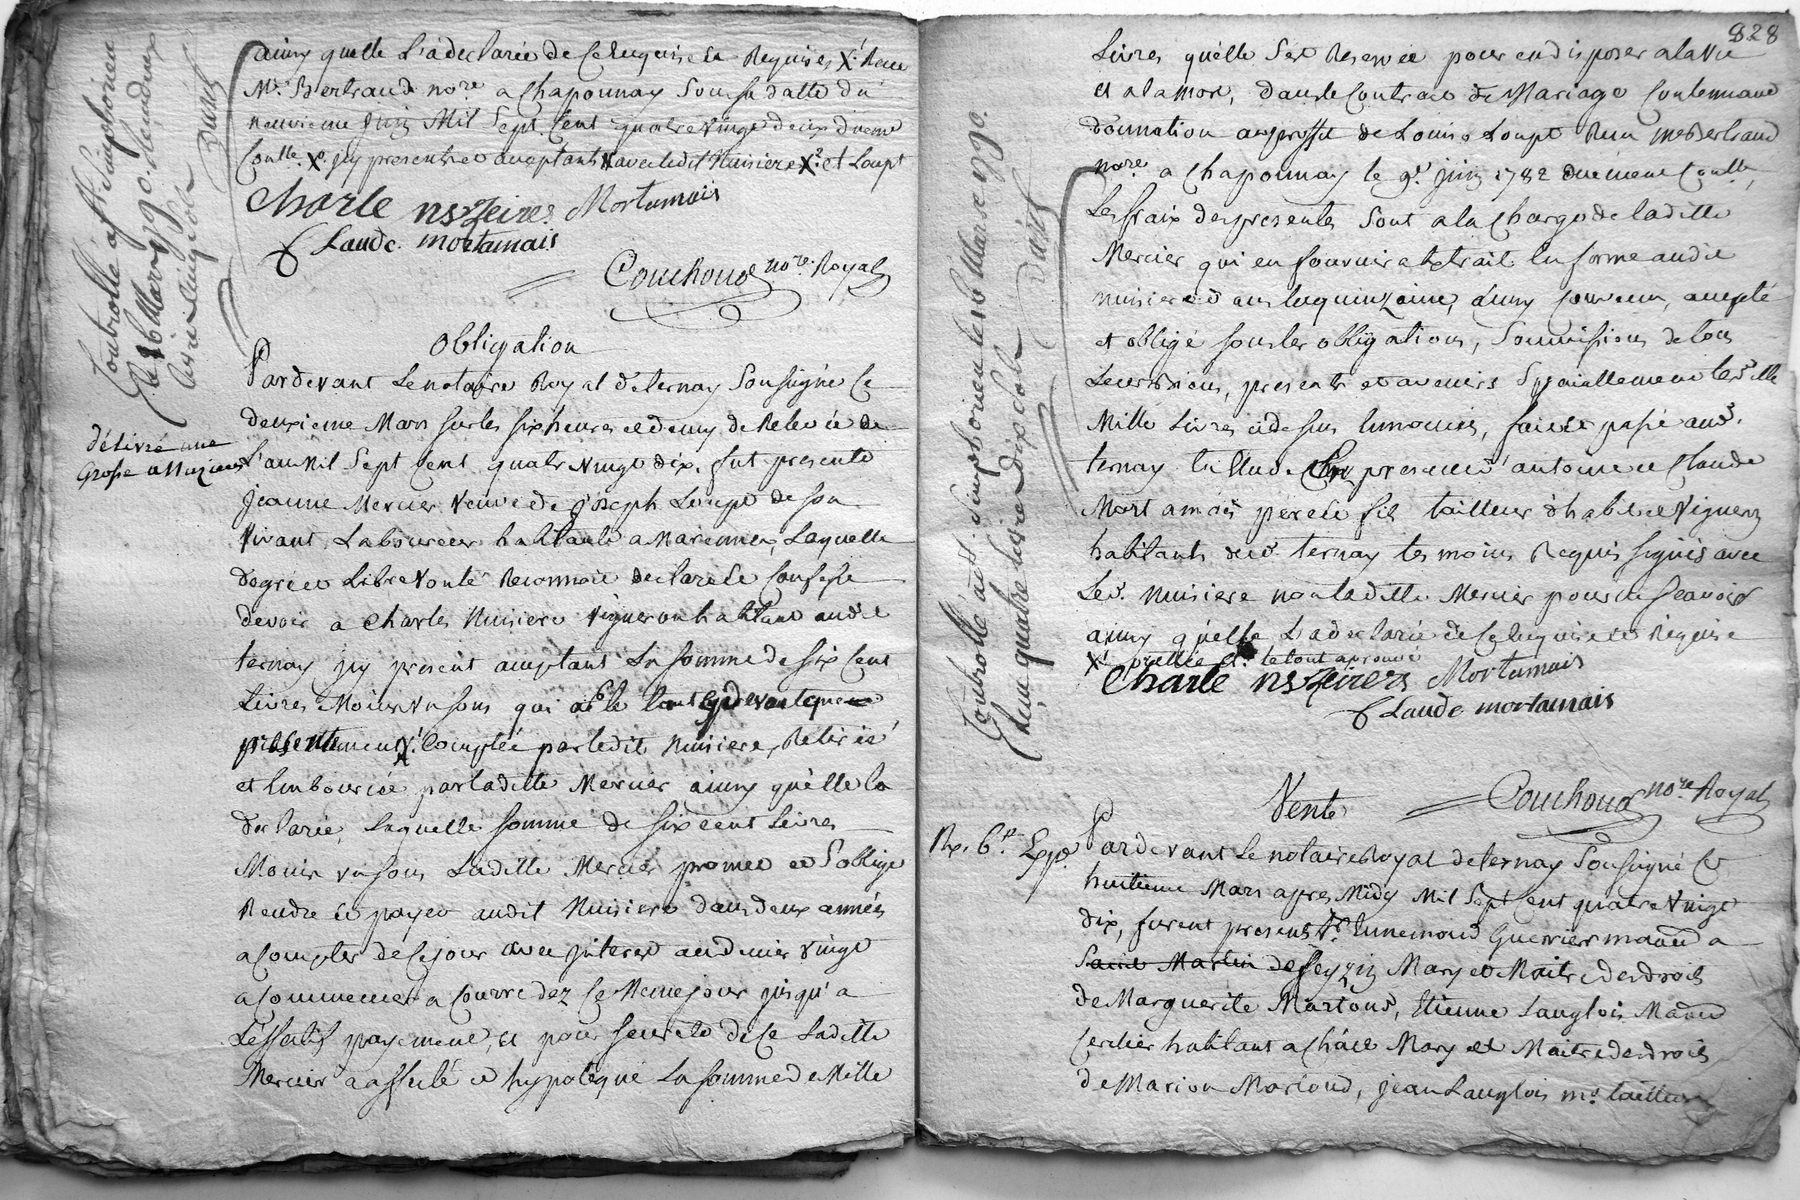 ainsy quelle L'a declarée de ce enquise et Requises X. Reçu
Me. Bertrand no.re a Chaponnay sous sa datte du
neuvieme Juin Mil Sept Cent quatre vingt deux duem.
Conlle. X. jcy present et aceptant avec ledit Nuisiere X. et Loupt
Charle nszeires Mortamais
Claude mortamais
Couchoud no.re Royal
Controllé a st. simphorien
le 16 Mars 1790. Reçu deux
livres cinq sols
Obligation
Pardevant Le notaire Royal d'eternay Soussigné Ce
deuxieme Mars sur les six heures et demy de Relevée de
L'an Mil Sept Cent quatre vingt dix, fut presente
délivré une
Grosse a Nuizieres
Jeanne Mercier veuve de Joseph Loupt de son
vivant Laboureur habitante a Marennes, Laquelle
de gré et Libre volonté Reconnoit declare et Confesse
devoir a Charles Nuisiere vigneron habitant audit
ternay jcy present aceptant La somme de six Cent
Livres
presentement X. Comptée par ledit Nuisiere, Retirée
et Emboursée par laditte Mercier ainsy qu'elle la
declarée, Laquelle somme de six cent Livres
Laditte Mercier promet et s'oblige
Rendre et payer audit Nuisiere dans deux années
a Compter de Ce jour avec jnteret au denier vingt
a Commencer a Courrir dez Ce Meme jour jusqu'a
L'effectif payement, et pour seureté de Ce Laditte
Mercier a affecté et hypotequé La somme de Mille
828
Livres qu'elle s'est Reservée pour en disposer a la vie
et a la mort, dans le Contract de Mariage Contennant
donnation au proffit de Louis Loupt Reçu Me Bertrand
no.re a Chaponnay le 9e. Juin 1782 duement Conllé,
Les fraix des presentes sont a la Charge de laditte
Mercier qui en fournira Extrait En forme audit
Nuisiere dans la quinzaine, ainsy Convenu, accepté
et obligé sous les obligations, Soumissions de tous
Leurs biens, presents et avenirs Specialement Lesd.
Mille Livres cy dessus Enoncées, fait et passé aud.
ternay En Etude En presence d'antoine et Claude
Mortamais pere et fils tailleur d'habit et Vigneron
habitants dud. ternay temoins Requis signés avec
Led. Nuisiere non laditte Mercier pour ne sçavoir
ainsy qu'elle L'a declarée de Ce enquise et Requise
le tout aprouvé
Charle nszeirers Mortamais
Claude mortamais
Couchoud no.re Royal
Controllé a st. simphorien le 16 Mars 1790.
Reçu quatre livres dix sols
Vente
Pardevant Le notaire Royal de ternay Soussigné Ce
huitieme Mars apres Midy Mil Sept Cent quatre Vingt
dix, furent presents Sr. Ennemond Guerrier a
Saint Martin de feyzin Mary et Maitre des droits
de Marguerite Martoud, Etienne Langlois
habitant a Mary et Maitre des droits
de Marion Martoud, Jean Langlois me. tailleur